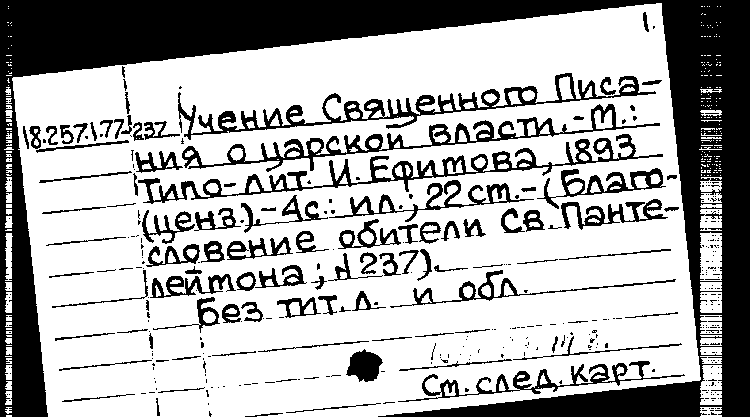 1.
18.257.1.77-237 Учение Священного Писа-
ния о царской власти.-М.:
Типо-лит. И. Ефимова, 1893
(ценз.).-4с.: ил.; 22 ст.-(Благо-
словение обители Св. Панте-
леймона; N 237).
Без тит.л. и обл.
См. след. карт.